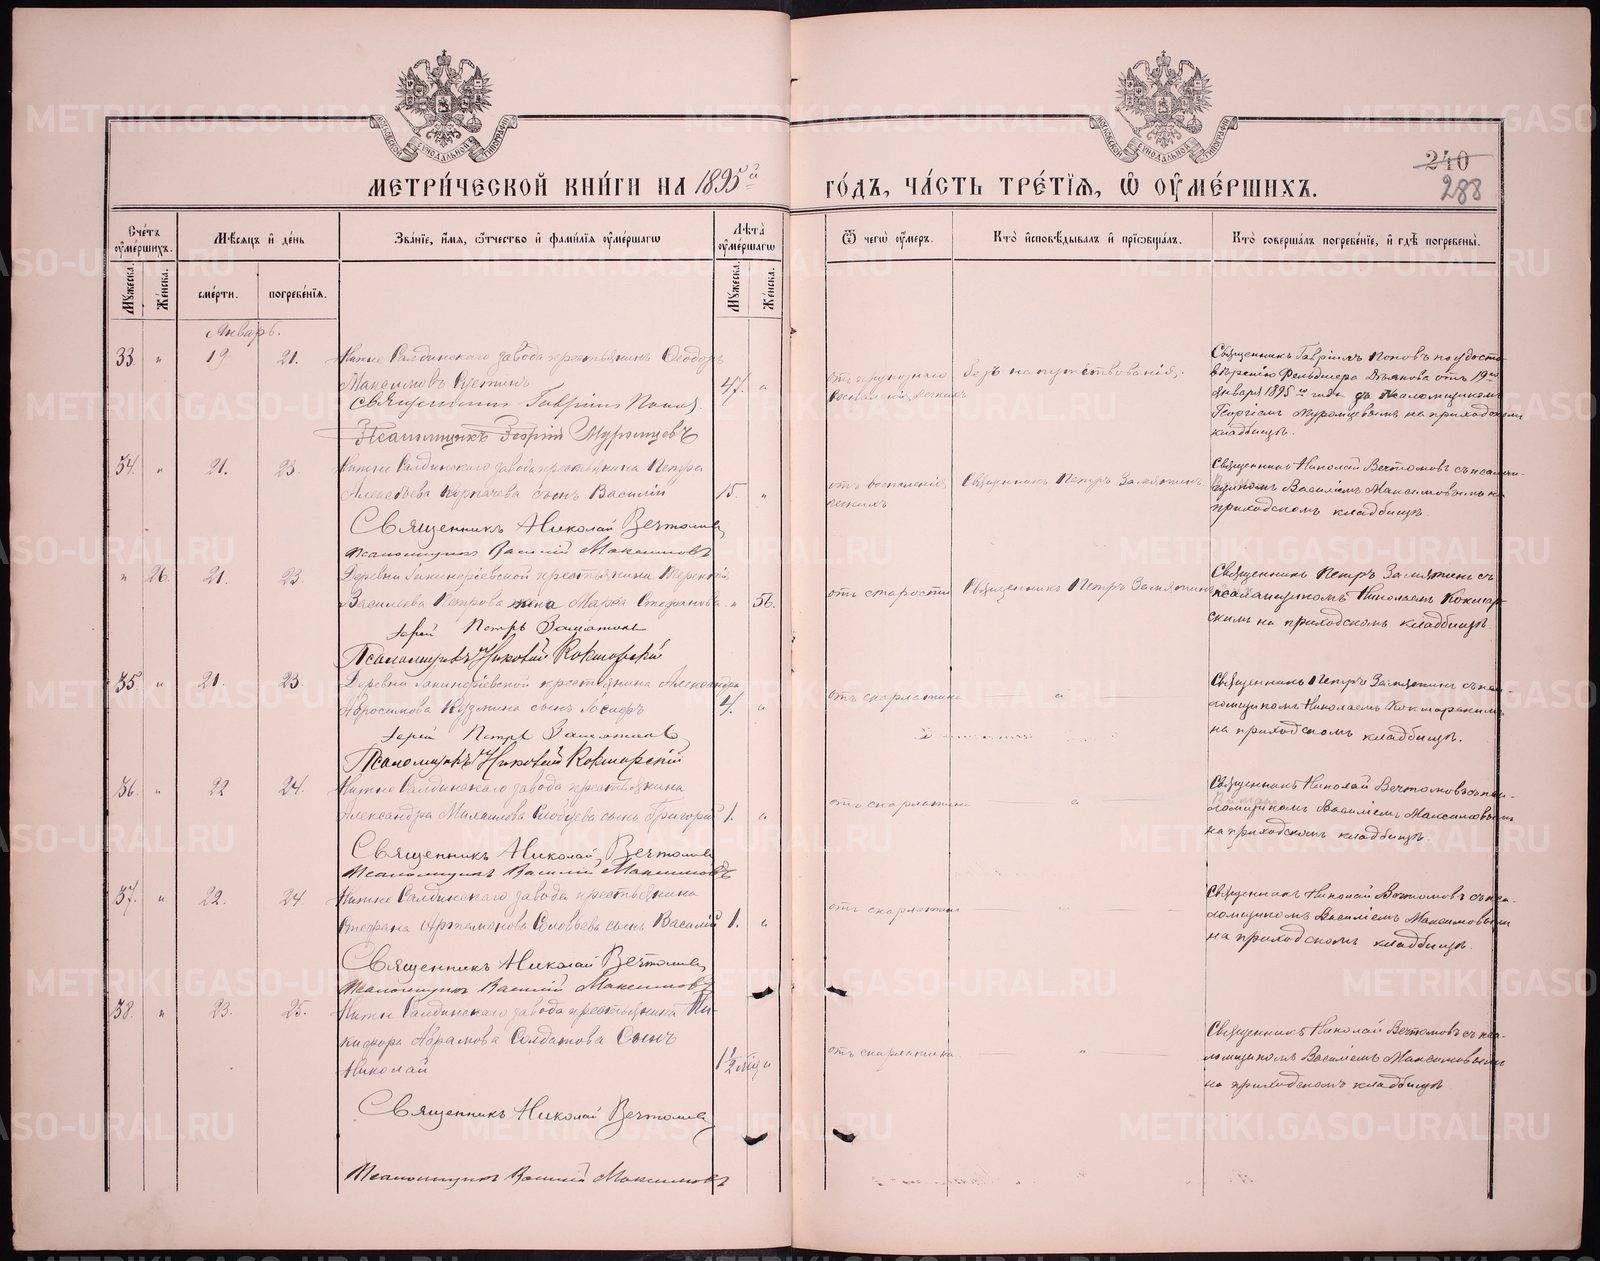 МЕТРИ́ЧЕСКОЙ КНИ́ГИ НА 1895й ГО́ДЪ, ЧА́СТЬ ТРЕ́ТЇѦ, Ѿ ОУ҆МЕ́РШИХЪ.
240
288
Сче́тъ оу҆ме́ршихъ.
Мꙋ́жеска.
Же́нска.
Мѣ́сѧцъ и҆ де́нь
сме́рти.
погребе́нїѧ.
Зва́нїе, и҆́мѧ, ѻ҆́тчество и҆ фами́лїѧ оу҆ме́ршагѡ
Лѣ́та оу҆ме́ршагѡ
Мꙋ́жеска.
Же́нска.
Ѿ чегѡ̀ оу҆́меръ.
Кто̀ и҆сповѣ́дывалъ и҆ прїѡбща́лъ.
Кто̀ соверша́лъ погребе́нїе, и҆ гдѣ̀ погребены̀.
Январь.
33 " 19 21.
Нижне Салдинскаго завода крестьянинъ Ѳеодоръ
Максимовъ
47. "
Священникъ Гавріилъ Поповъ.
Псаломщикъ Георгій Муромцевъ
безъ напутствованія.
Священникъ Гавріилъ Поповъ по удосто-
вѣренію Фельдшера Дьякова отъ 19го
Января 1895го года съ псаломщикомъ
Георгіемъ Муромцевымъ на приходскомъ
кладбищѣ.
34. " 21. 23.
Нижне Салдинскаго завода крестьянина Петра
Алексѣева Корпачева сынъ Василій
15. "
Священникъ Николай Вечтомовъ
Псаломщикъ Василій Максимовъ
отъ воспаленія
легкихъ
Священникъ Петръ Замятинъ
Священникъ Николай Вечтомовъ съ псалом-
щикомъ Василіемъ Максимовымъ на
приходскомъ кладбищѣ.
" 26. 21. 23.
Деревни Никинорїевской крестьянина Терентія
Васильева Петрова жена Марѳа Стефанова
" 56.
Іерей Петръ Замятинъ
Псаломщикъ Николай Кокшарскій
отъ старости
Священникъ Петръ Замятинъ
Священникъ Петръ Замятинъ съ
псаломщикомъ Николаемъ Кокшар-
скимъ на приходскомъ кладбищѣ.
35 " 21. 23.
Деревни Никинорїевской крестьянина Александра
Абросимова Кузмина сынъ Іосифъ
4. "
Іерей Петръ Замятинъ
Псаломщикъ Николай Кокшарскій
отъ скарлатина
"
Священникъ Петръ Замятинъ съ пса-
ломщикомъ Николаемъ Кокшарскимъ
на приходскомъ кладбищѣ.
36. " 22 24.
Нижне Салдинскаго завода крестьянина
Александра Михаилова Слобцева сынъ Григорій
1. "
Священникъ Николай Вечтомовъ
Псаломщикъ Василій Максимовъ
отъ скарлатина
"
Священникъ Николай Вечтомовъ съ пса-
ломщикомъ Василіемъ Максимовымъ
на приходскомъ кладбищѣ.
37. " 22. 24
Нижне Салдинскаго завода крестьянина
Стефана Артамонова Соловьева сынъ Василій
1. "
Священникъ Николай Вечтомовъ
Псаломщикъ Василій Максимовъ
отъ скарлатина
"
Священникъ Николай Вечтомовъ съ пса-
ломщикомъ Василіемъ Максимовымъ
на приходскомъ кладбищѣ.
38. " 23. 25.
Нижне Салдинскаго завода крестьянина Ни-
кифора Абрамова Солдатова Сынъ
Николай
1½ мѣц "
Священникъ Николай Вечтомовъ
Псаломщикъ Василій Максимовъ
отъ скарлатина
"
Священникъ Николай Вечтомовъ съ пса-
ломщикомъ Василіемъ Максимовымъ
на приходскомъ кладбищѣ
METRIKI.GASO-URAL.RU